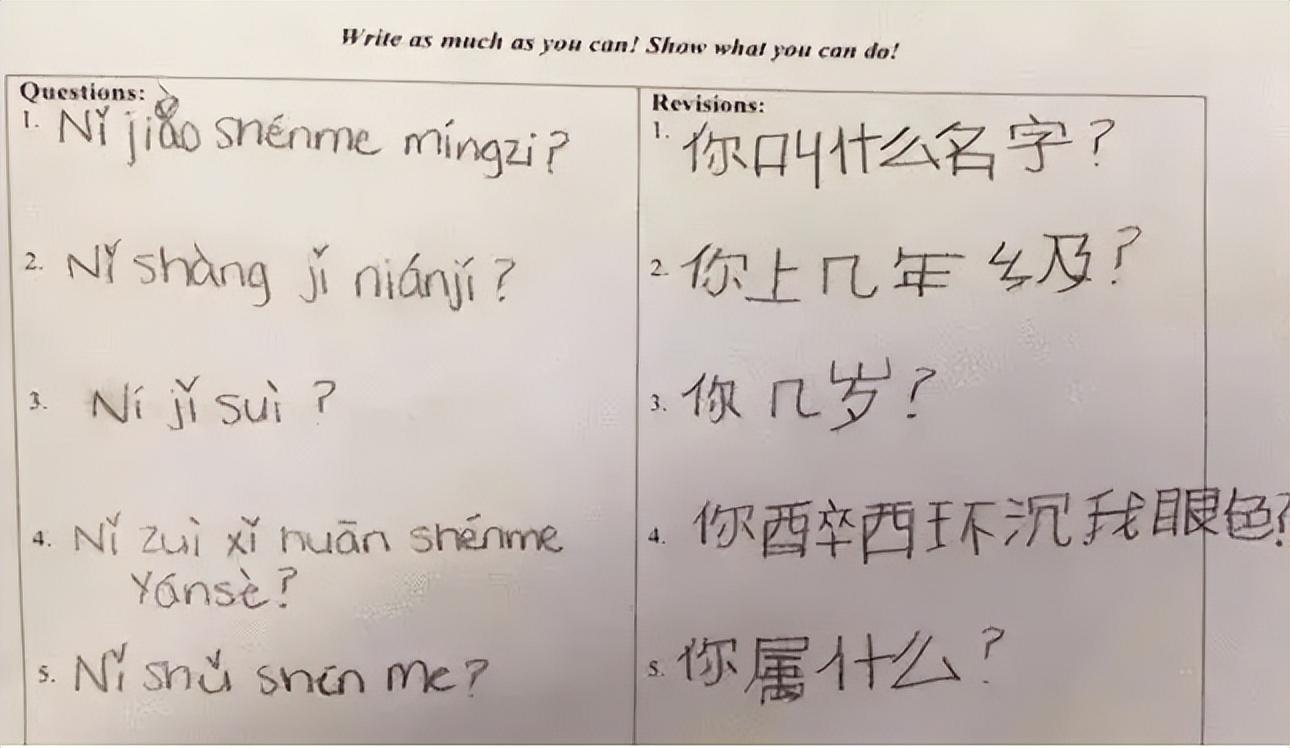 Write as much as you can! Show what you can do!
Questions:
1. Nǐ jiào shénme míngzi?
2. Nǐ shàng jǐ niánjí?
3. Ní jǐ suì?
4. Nǐ zuì xǐ huān shénme
Yánsè?
5. Nǐ shǔ shén me?
Revisions:
1. 你叫什么名字?
2. 你上几年级?
3. 你几岁?
4. 你酉卒西环沉我眼色?
5. 你属什么?